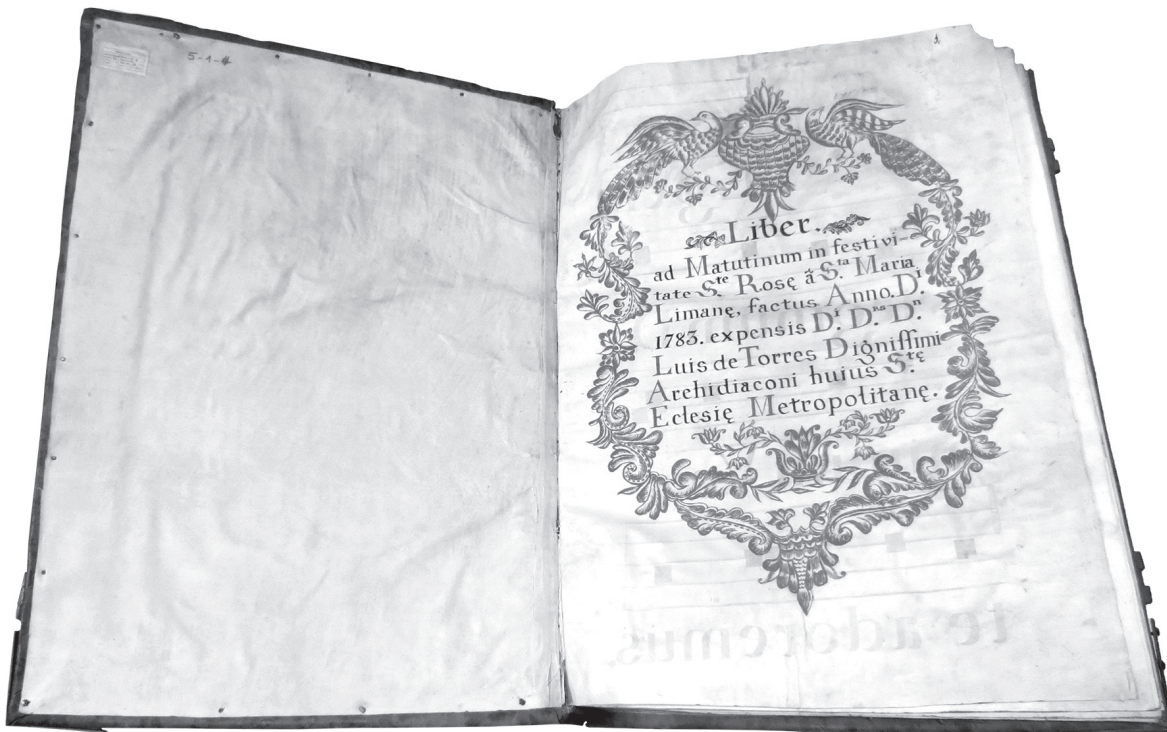 5-1-4
1
Liber.
ad Matutinum in festivi-
tate S.te Rosę ã S.ta Maria
Limanę, factus Anno. D.i
1783. expensis D.i D.ns D.n
Luis de Torres Dignissimi
Archidiaconi huius S.tę
Eclesię Metropolitanę.
te adoremus